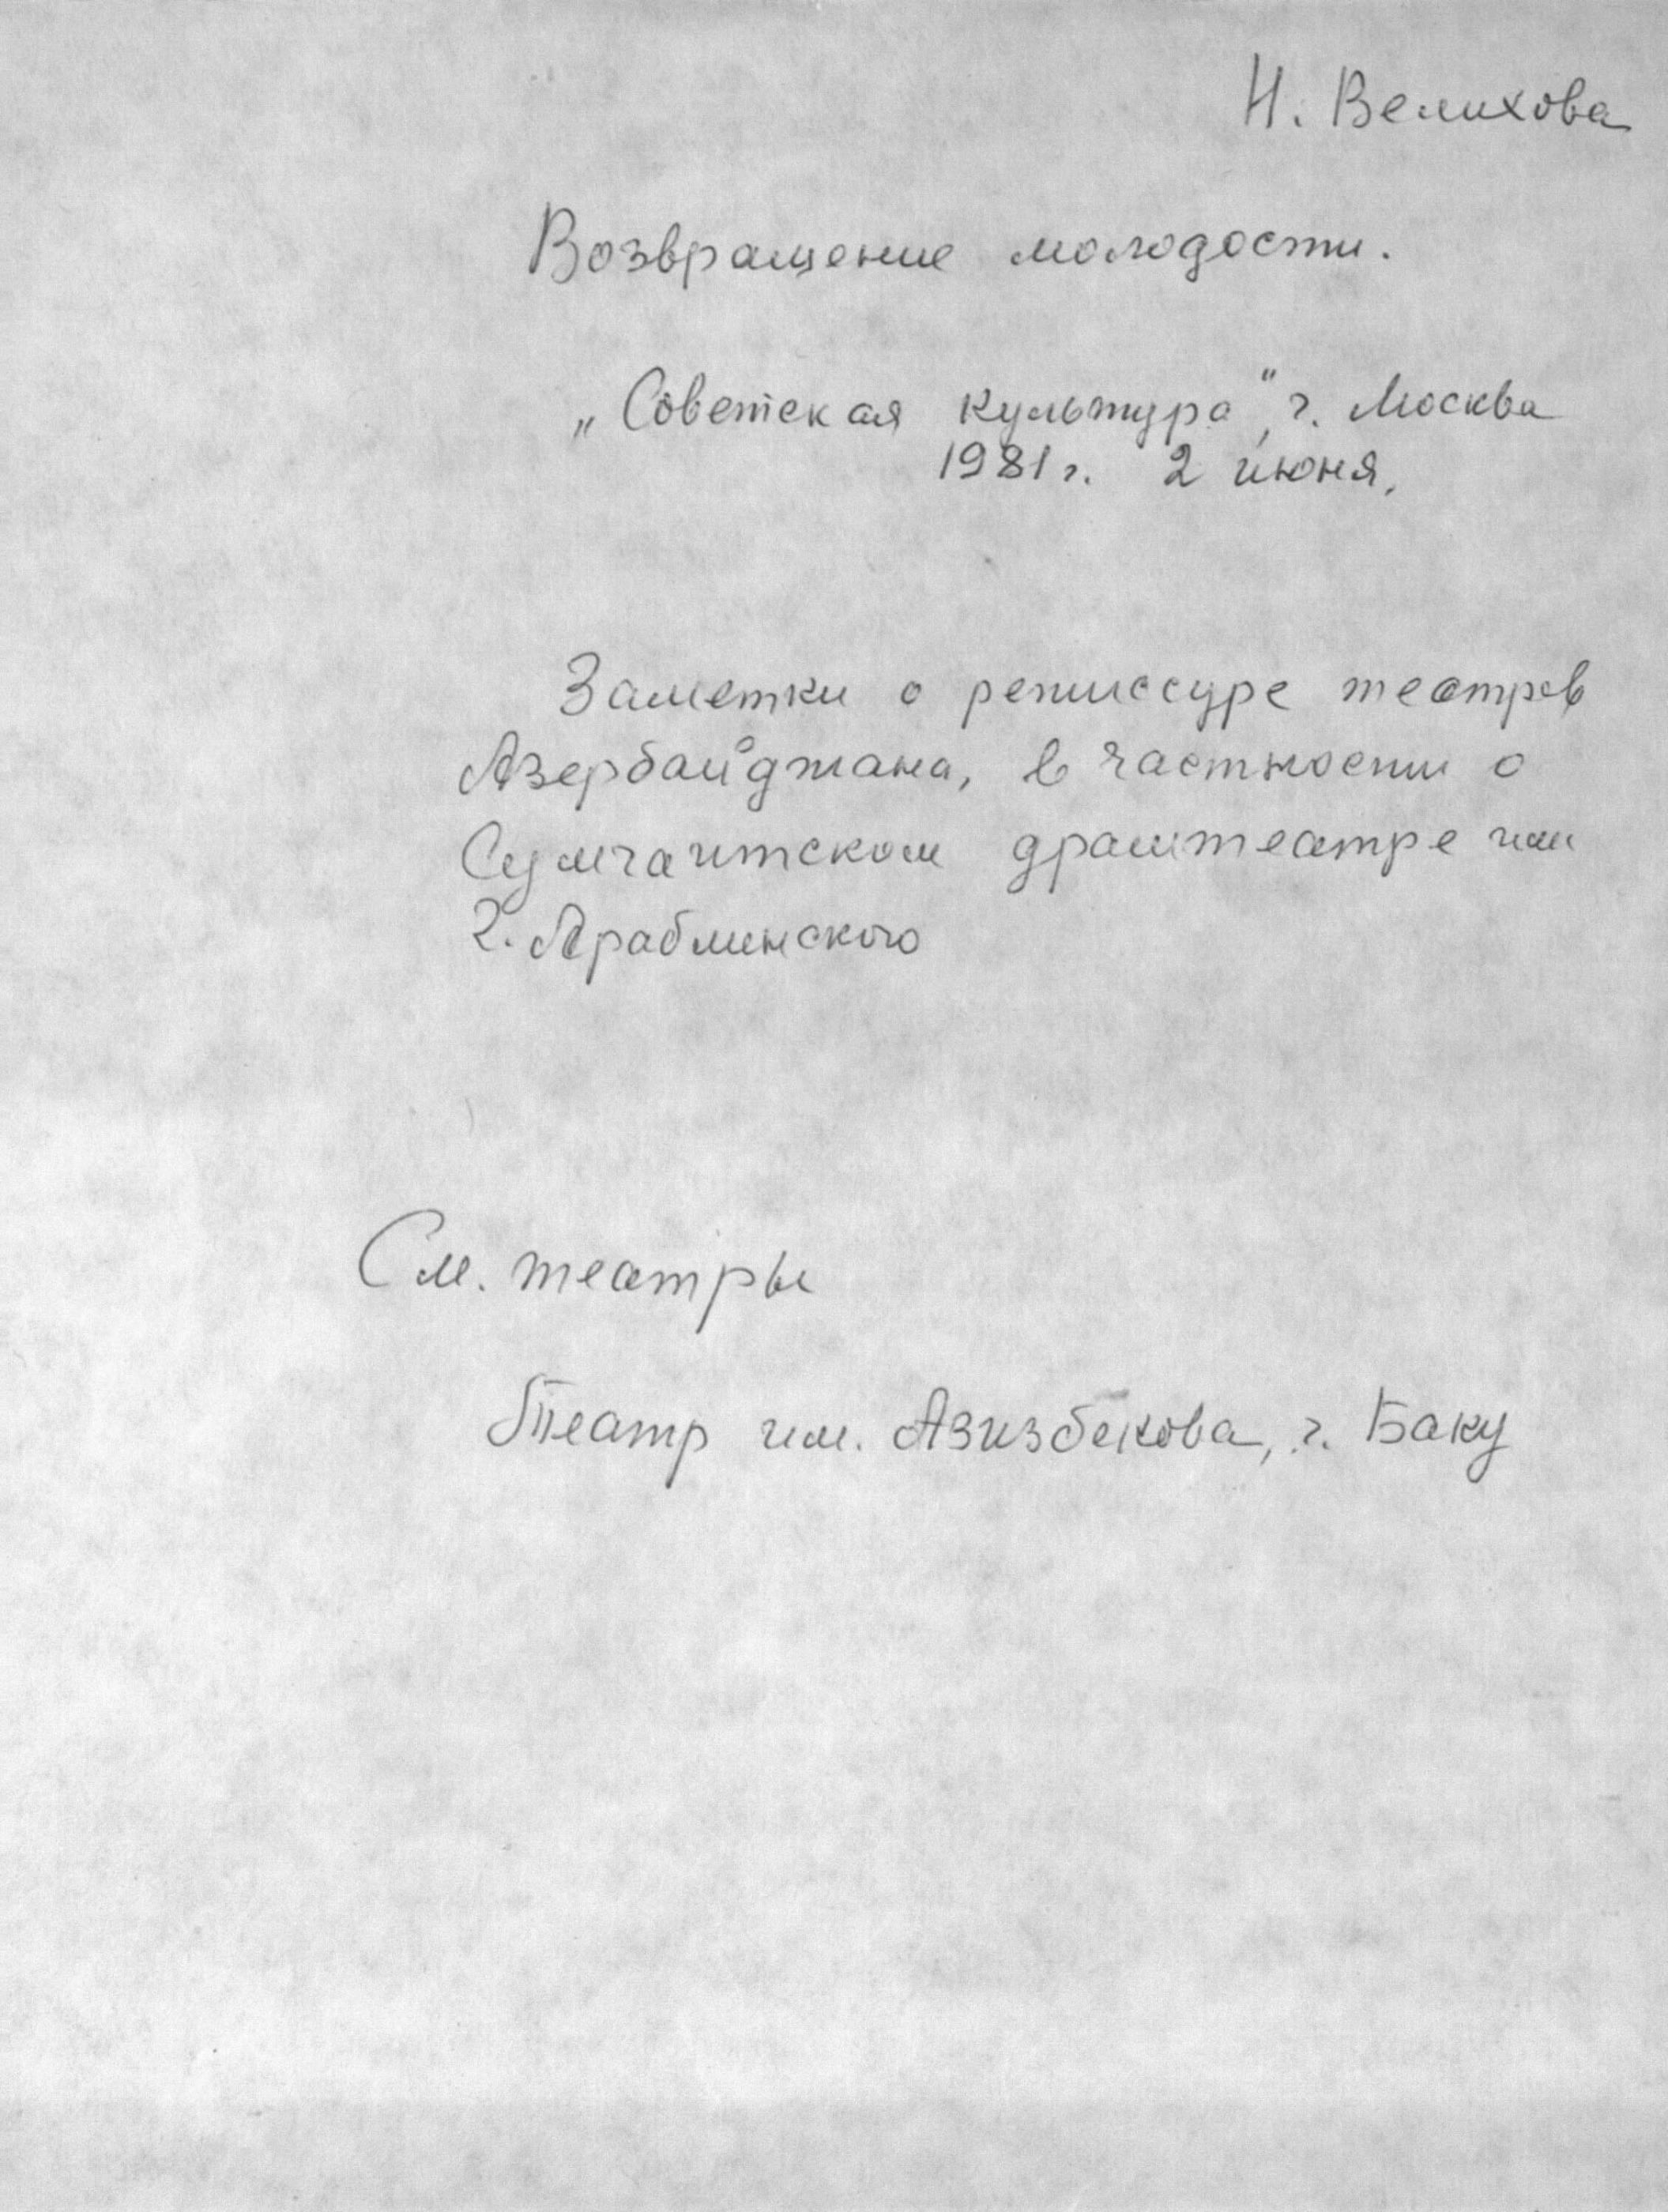 Н. Велихова
Возвращение молодости.
„Советская культура“, г. Москва
1981 г. 2 июня.
Заметки о режиссуре театров
Азербайджана, в частности о
Сумгаитском драмтеатре им
Г. Араблинского
См. театры
Театр им. Азизбекова, г. Баку